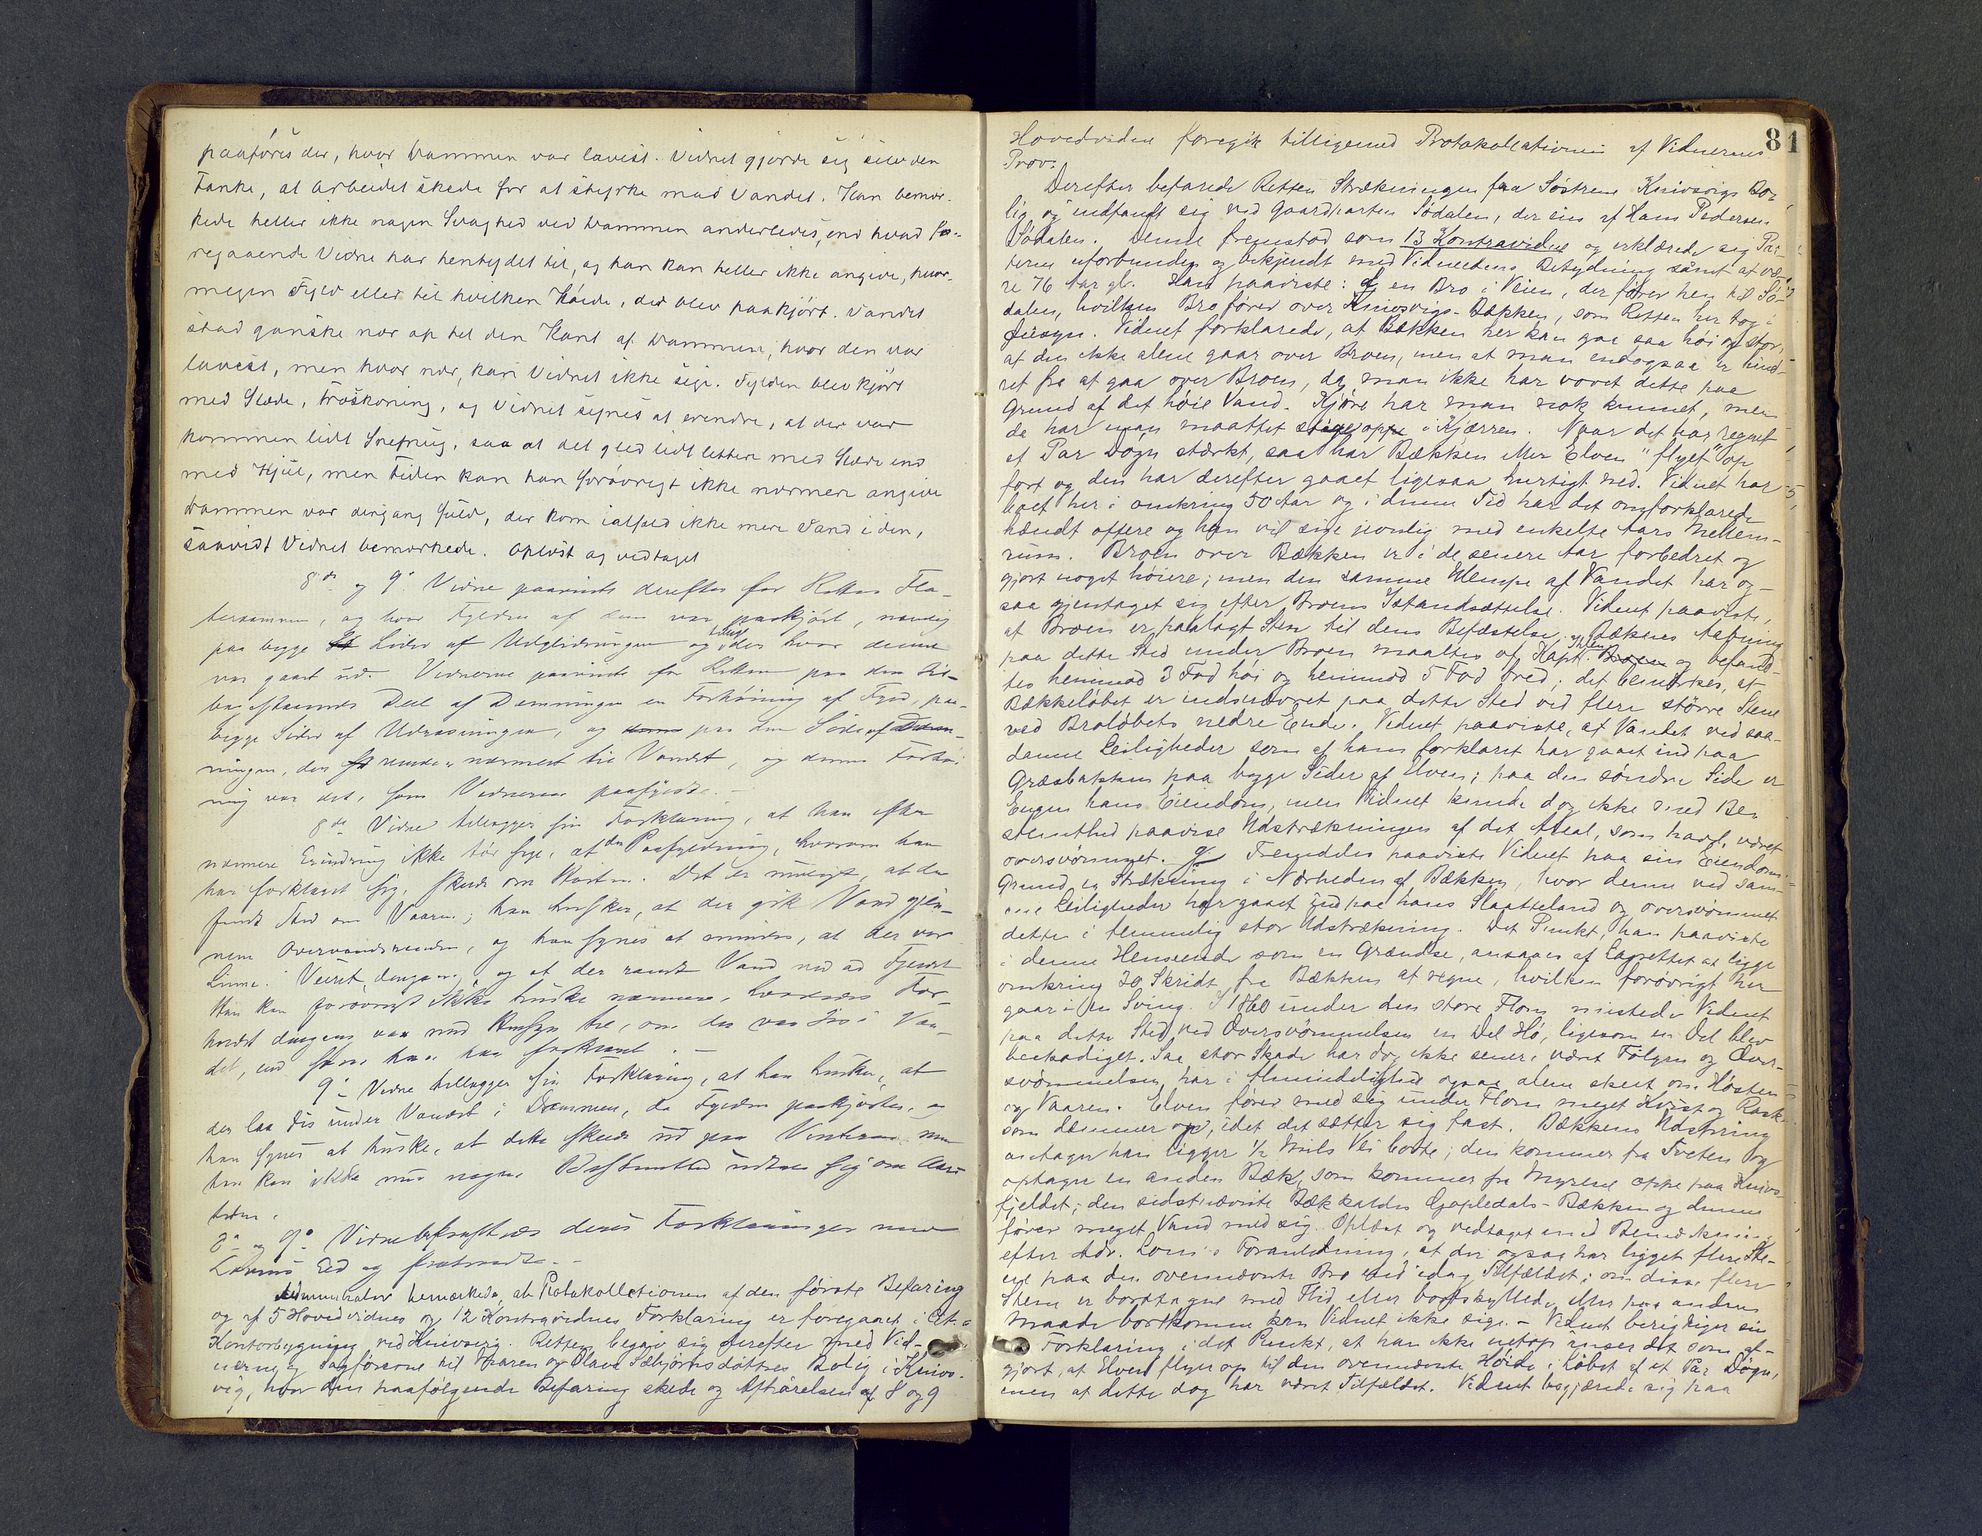 paaføres der, hvor Dammen var lavest. Vidnet gjorde sig selv den
Tanke, at Arbeidet skede for at styrke mod Vandet. Han bemær-
kede heller ikke nogen Svaghed ved Dammen anderledes, end hvad fo-
regaaende Vidne har hentydet til, og han kan heller ikke angive, hvor-
megen Fyld eller til hvilken Høide, der blev paakjørt. Vandet
stod ganske nær op til den Kant af Dammen, hvor den var
lavest, men hvor nær, kan Vidnet ikke sige. Fylden blev kjørt
med Slæde, Træskoning, og Vidnet synes at erindre, at der var
kommen lidt Snefnug, saa at det gled lidt lettere med Slæde end
med Hjul, men Tiden kan han forøvrigt ikke nærmere angive
Dammen var dengang fuld, der kom ialfald ikke mere Vand i den,
saavidt Vidnet bemærkede. Oplæst og vedtaget
8de og 9de Vidne paaviste derefter for Retten Fla-
tersammen, og hvor Fylden af dem var paakjørt, nemlig
paa begge Sider af Udglidningen og tillige der hvor denne
var gaaet ud. Vidnerne paaviste for Retten paa den til-
bagestaaende Deel af Demningen en Forhøining af Fyld, paa
begge Sider af Udrasningen, og paa den Side af Dæm-
ningen, der vender nærmest til Vandet, og denne Forhøi-
ning var det, som Vidnerne paafyldte. -
8de Vidne tillægger sin Forklaring, at han efter
nærmere Erindring ikke tør sige, at den Paafyldning, hvorom han
har forklaret sig, skede om Høsten. Det er muligt, at den
fandt Sted om Vaaren; han husker, at der gik Vand gjen-
nem Overvandsrenden, og han synes at mindes, at der var
Linne i Veiret dengang og at der randt Vand ned ad Fjeldet
Han kan forøvrigt ikke huske nærmere, hvordan For-
holdet dengang var med Hensyn til, om der var Iis i Van-
det, end som han har forklaret. -
9de Vidne tillægger sin Forklaring, at han husker, at
der laa Iis under Vandet i Dammen, da Fylden paakjørtes, og
han synes at huske, at dette skede ud paa Vinteren men
han kan ikke med nogen Bestemthed udtale sig om Aars-
tiden.
8de og 9de Vidne bekræftede deres Forklaringer med
Lovens Eed og fratraadte. -
Administrator bemærkede, at Protokollationen af den første Befaring
og af 5 Hovedvidnes og 12 Kontravidnes Forklaring er foregaaet i Et.s
Kontorbygning ved Knivsvig. Retten begav sig derefter med Vid-
nerne og Sagførerne til Maren og Olava Sæbjørnsdøttres Bolig i Knivs-
vig, hvor den paafølgende Befaring skede og Afhørelsen af 8 og 9
81
Hovedvidne foregik tilligemed Protokollationen af Vidnernes
Prov.
Derefter befarede Retten Strækningen fra Søstrene Knivsvigs Bo-
lig og indfandt sig ved Gaardparten Sødalen, der eies af Hans Pedersen
Sødalen. Denne fremstod som 13 Kontravidne og erklærede sig Par-
terne uforbunden og bekjendt med Vidneedens Betydning samt at væ-
re 76 Aar gl. Han paaviste: en Bro i Veien, der fører hen til Sø-
dalen, hvilken Bro fører over Knivsvigs-Bækken, som Retten her tog i
Øiesyn. Vidnet forklarede, at Bækken her kan gaa saa høi og stor,
at den ikke alene gaar over Broen, men at man endogsaa er hind-
ret fra at gaa over Broen, da man ikke har vovet dette paa
Grund af det høie Vand. Kjøre har man nok kunnet, men
da har man maattet stige oppe i Kjærren. Naar det har regnet
et Par Døgn stærkt, saa har Bækken eller Elven "flyet" op
fort og den har derefter gaaet ligesaa hurtigt ned. Vidnet har
boet her i omkring 50 Aar og i denne Tid har det omforklarede
hændt oftere og han vil sige jevnlig med enkelte Aars Mellem-
rum. Broen over Bækken er i de senere Aar forbedret og
gjort noget høiere; men den samme Ulempe af Vandet har og-
saa gjentaget sig efter Broens Istandsættelse. Vidnet paaviste,
at Broen er paalagt Sten til dens Befæstelse. Bækkens Aabning
paa dette Sted under Broen maaltes af Kapt. og befand-
tes henimod 3 Fod høi og henimod 5 Fod bred; det bemærkes, at
Bækkeløbet er indsnævret paa dette Sted ved flere større Stene
ved Broløbets nedre Ende. Vidnet paaviste, at Vandet ved saa-
danne Leiligheder som af ham forklaret har gaaet ind paa
Græsbakken paa begge Sider af Elven; paa den søndre Side er
Engen hans Eiendom, men Vidnet kunde dog ikke med Be-
stemthed paavise Udstrækningen af det Areal, som havde været
oversvømmet. Fremdeles paaviste Vidnet paa sin Eiendoms
Grund en Strækning i Nærheden af Bækken, hvor denne ved sam-
me Leiligheder har gaaet ind paa hans Slaatteland og oversvømmet
dette i temmelig stor Udstrækning. Det Punkt, han paaviste
i denne Henseende som en Grændse, ansaaes af Lagrettet at ligge
omkring 20 Skridt fra Bækken at regne, hvilken forøvrigt her
gaar i en Sving. I 1860 under den store Flom mistede Vidnet
paa dette Sted ved Oversvømmelsen en Del Hø, ligesom en Del blev
beskadiget. Saa stor Skade har dog ikke senere været Følgen og Over-
svømmelsen har i Almindelighed ogsaa alene skeet om Høsten
og Vaaren. Elven fører med sig under Flom meget Kvist og Rask
som dæmmer op, idet det sætter sig fast. Bækkens Udspring
antager han ligger 1/2 Mils Vei borte; den kommer fra Tveten og
optager en anden Bæk, som kommer fra Myrene oppe paa Knivs-
fjeldet; den sidstnævnte Bæk kaldes Gjapledals-Bækken og denne
fører meget Vand med sig. Oplæst og vedtaget med Bemærkning
efter Adv. Lous's Foranledning, at der ogsaa har ligget flere Ste-
ne paa den ovennævnte Bro end idag Tilfældet; om disse flere
Stene er borttagne med Flid eller bortskyllede eller paa anden
Maade bortkomne kan Vidnet ikke sige. - Vidnet berigtiger sin
Forklaring i det Punkt, at han ikke netop anser det som af-
gjort, at Elven flyer op til den ovennævnte Høide i Løbet af et Par Døgn,
men at dette dog har været Tilfældet. Vidnet begjærede sig paa